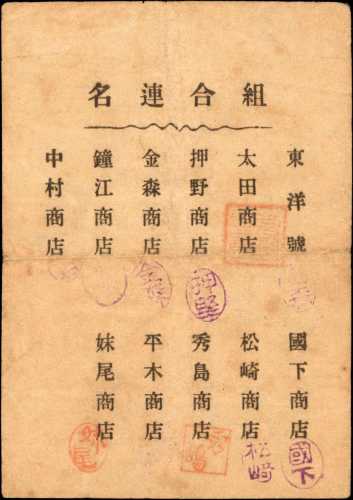 組合連名
東洋號
太田商店
押野商店
金森商店
鐘江商店
中村商店
國下商店
松崎商店
秀島商店
平木商店
妹尾商店
國下
松崎
妹尾